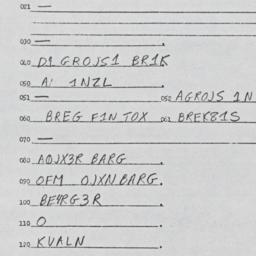 021 —
030 —
040 D1 GROJS1 BR1K
050 A: 1NZL
051 — 052 AGROJS 1N
060 BREG F1N TOX 061 BREK81S
070 —
080 AOJX3R BARG
090 OFM OJXN BARG.
100 BE4RG3R
110 O
120 KVALN